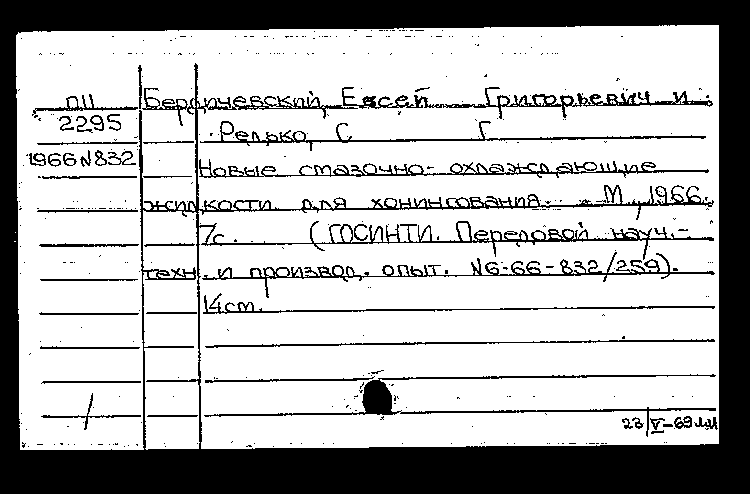 П11 Бердичевский, Евсей Григорьевич и
2295 Редько, С Г
1966 N832 Новые смазочно-охлаждающие
жидкости для хонингования. М., 1966.
7с. (ГОСИНТИ. Передовой науч.-
техн. и производ. опыт. N6-66-832/259).
14см.
23/V-69